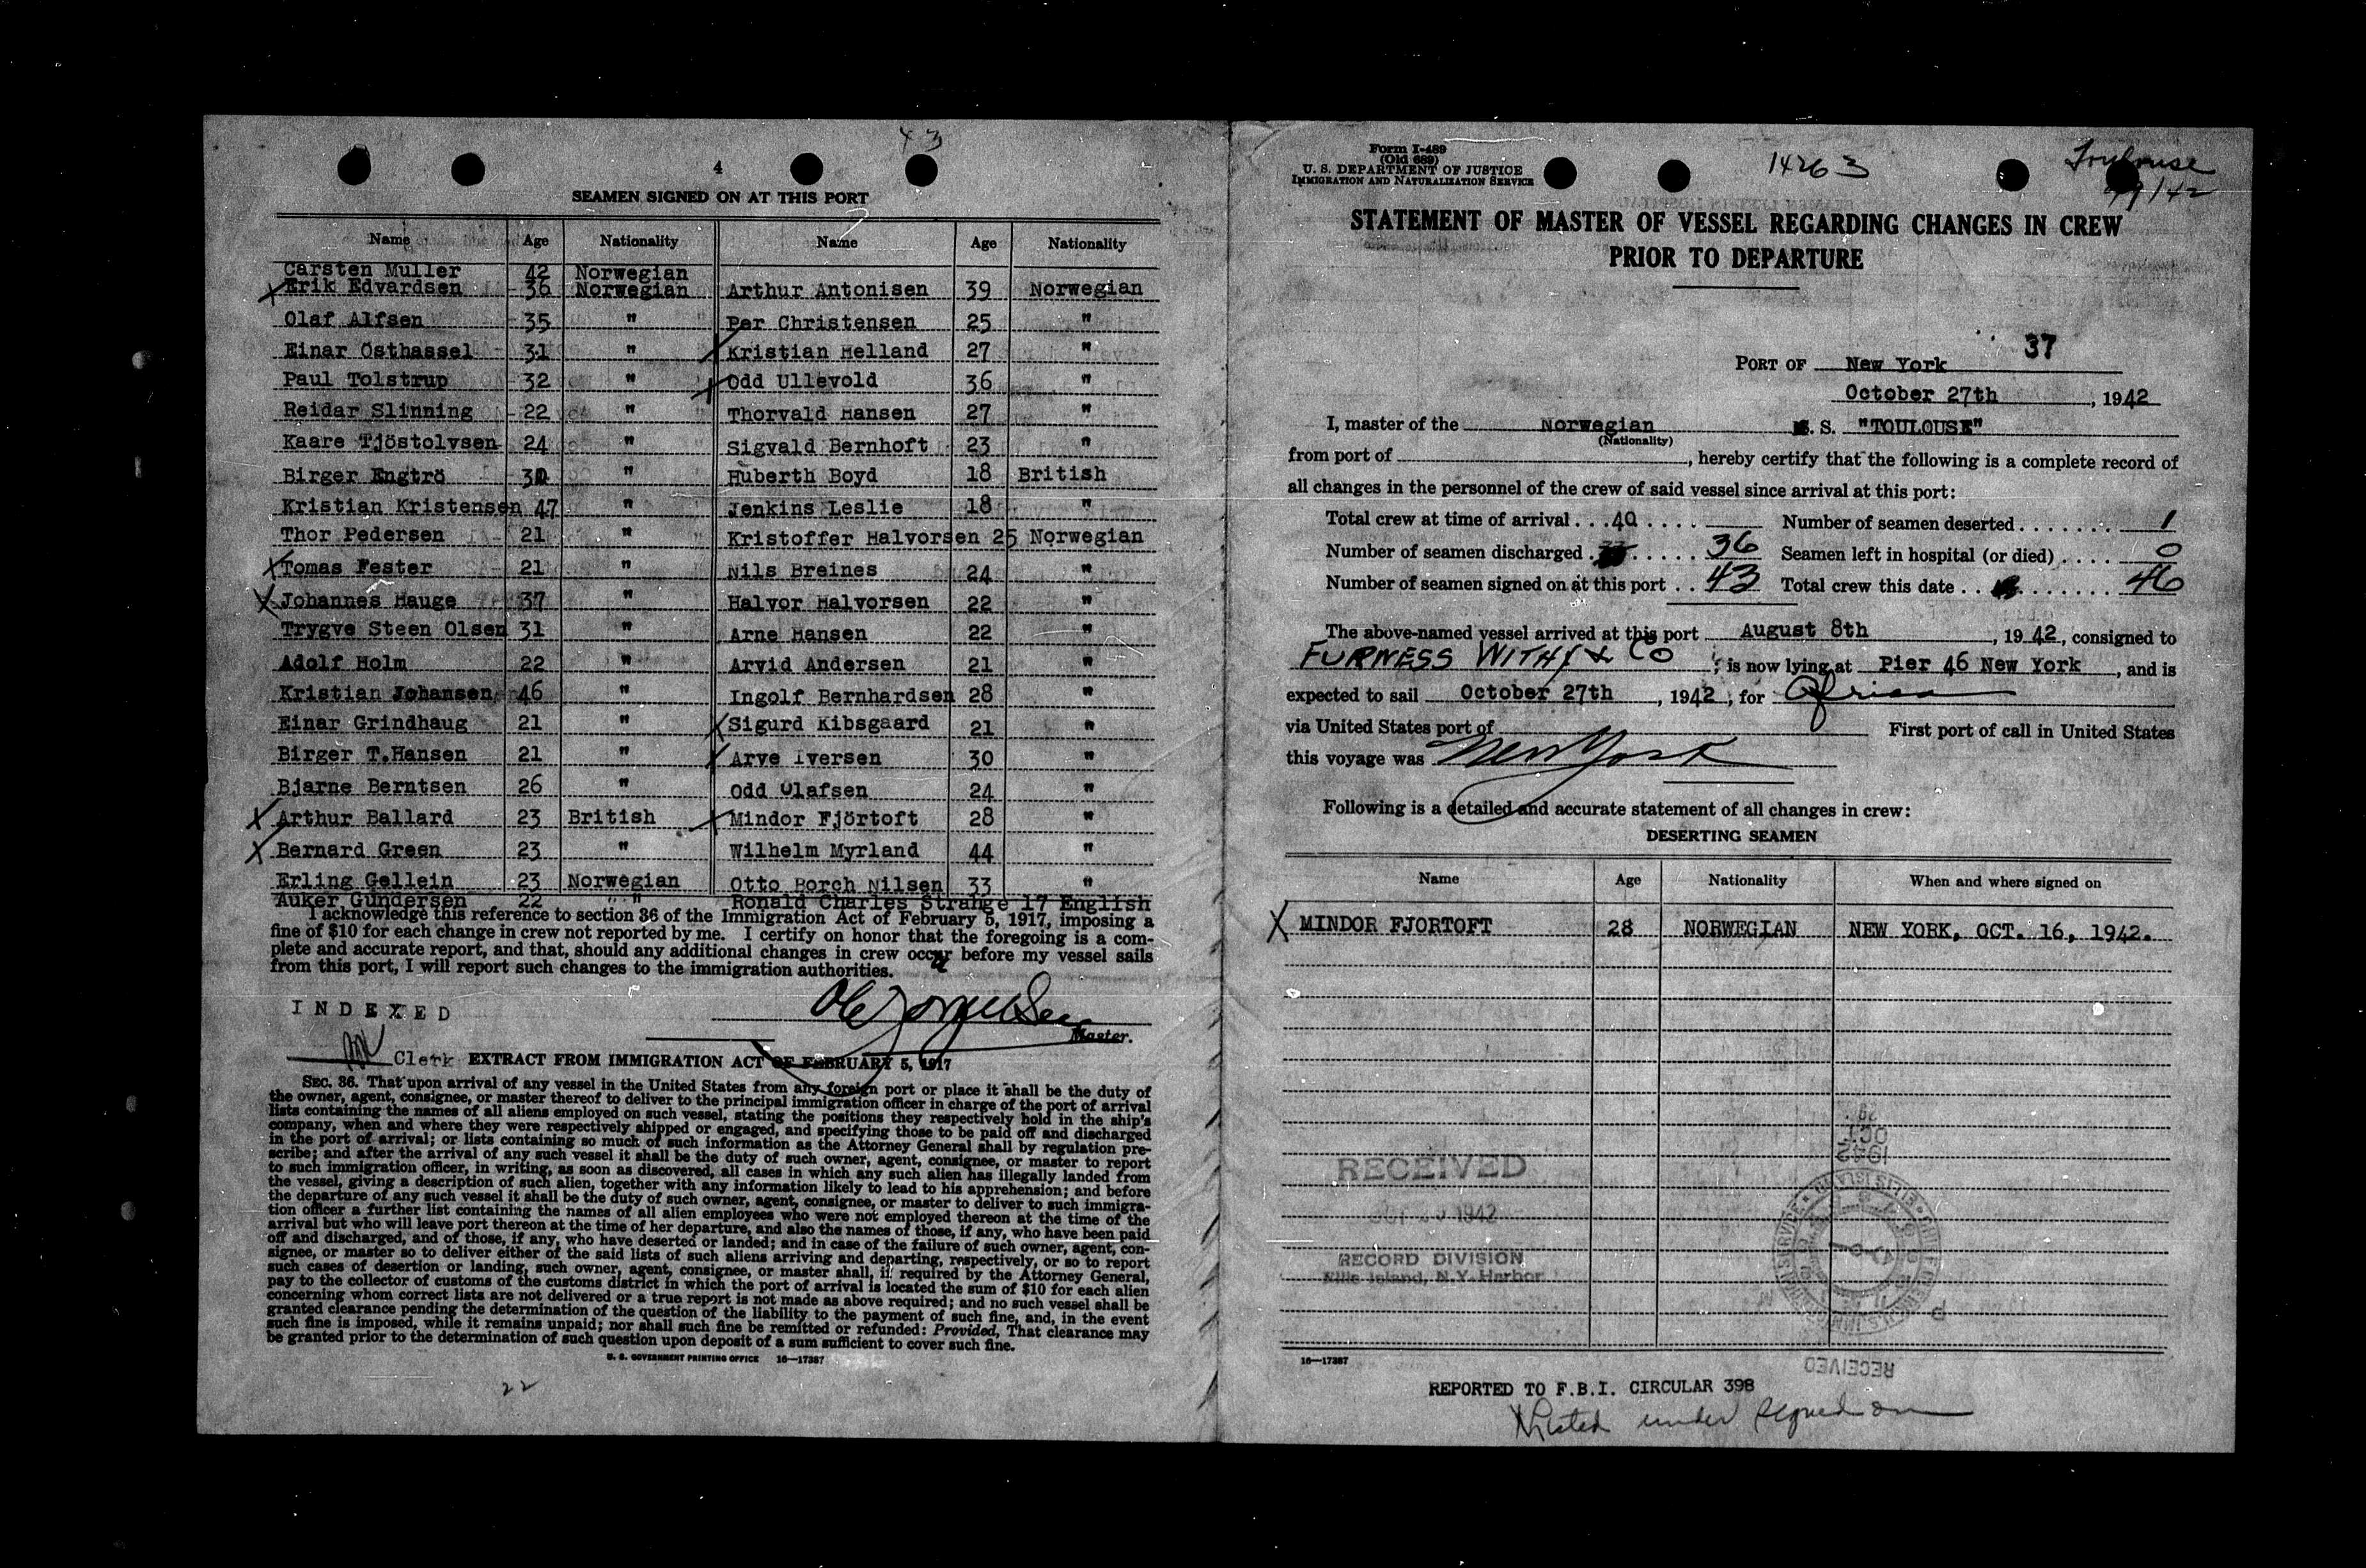 43
4
SEAMEN SIGNED ON AT THIS PORT
Name Age Nationality Name Age Nationality
Carsten Muller 42 Norwegian
X Erik Edvardsen 36 Norwegian Arthur Antonisen 39 Norwegian
Olaf Alfsen 35 " Per Christensen 25 "
Einar Östhassel 31 " Kristian Helland 27 "
Paul Tolstrup 32 " Odd Ullevold 36 "
Reidar Slinning 22 " Thorvald Hansen 27 "
Kaare Tjöstolvsen 24 " Sigvald Bernhoft 23 "
Birger Engtrö " Huberth Boyd 18 British
Kristian Kristensen 47 " Jenkins Leslie 18 "
Thor Pedersen 21 " Kristoffer Halvorsen 25 Norwegian
X Tomas Fester 21 " Nils Breines 24 "
X Johannes Hauge 37 " Halvor Halvorsen 22 "
Trygve Steen Olsen 31 " Arne Hansen 22 "
Adolf Holm 22 " Arvid Andersen 21 "
Kristian Johansen 46 " Ingolf Bernhardsen 28 "
Einar Grindhaug 21 " X Sigurd Kibsgaard 21 "
Birger T.Hansen 21 " Arve Iversen 30 "
Bjarne Berntsen 26 " Odd Olafsen 24 "
X Arthur Ballard 23 British X Mindor Fjörtoft 28 "
X Bernard Green 23 " Wilhelm Myrland 44 "
Erling Gellein 23 Norwegian Otto Borch Nilsen 33 "
Auker Gundersen 22 " " Ronald Charles Strange 17 English
I acknowledge this reference to section 36 of the Immigration Act of February 5, 1917, imposing a
fine of $10 for each change in crew not reported by me. I certify on honor that the foregoing is a com-
plete and accurate report, and that, should any additional changes in crew occur before my vessel sails
from this port, I will report such changes to the immigration authorities.
INDEXED
Master.
Clerk EXTRACT FROM IMMIGRATION ACT OF FEBRUARY 5, 1917
SEC. 36. That upon arrival of any vessel in the United States from any foreign port or place it shall be the duty of
the owner, agent, consignee, or master thereof to deliver to the principal immigration officer in charge of the port of arrival
lists containing the names of all aliens employed on such vessel, stating the positions they respectively hold in the ship's
company, when and where they were respectively shipped or engaged, and specifying those to be paid off and discharged
in the port of arrival; or lists containing so much of such information as the Attorney General shall by regulation pre-
scribe; and after the arrival of any such vessel it shall be the duty of such owner, agent, consignee, or master to report
to such immigration officer, in writing, as soon as discovered, all cases in which any such alien has illegally landed from
the vessel, giving a description of such alien, together with any information likely to lead to his apprehension; and before
the departure of any such vessel it shall be the duty of such owner, agent, consignee, or master to deliver to such immigra-
tion officer a further list containing the names of all alien employees who were not employed thereon at the time of the
arrival but who will leave port thereon at the time of her departure, and also the names of those, if any, who have been paid
off and discharged, and of those, if any, who have deserted or landed; and in case of the failure of such owner, agent, con-
signee, or master so to deliver either of the said lists of such aliens arriving and departing, respectively, or so to report
such cases of desertion or landing, such owner, agent, consignee, or master shall, if required by the Attorney General,
pay to the collector of customs of the customs district in which the port of arrival is located the sum of $10 for each alien
concerning whom correct lists are not delivered or a true report is not made as above required; and no such vessel shall be
granted clearance pending the determination of the question of the liability to the payment of such fine, and, in the event
such fine is imposed, while it remains unpaid; nor shall such fine be remitted or refunded: Provided, That clearance may
be granted prior to the determination of such question upon deposit of a sum sufficient to cover such fine.
U. S. GOVERNMENT PRINTING OFFICE 16—17387
22
Form I-489
(Old 689)
U. S. DEPARTMENT OF JUSTICE
IMMIGRATION AND NATURALIZATION SERVICE
14263
Toulouse
9/9/42
STATEMENT OF MASTER OF VESSEL REGARDING CHANGES IN CREW
PRIOR TO DEPARTURE
37
PORT OF New York
October 27th, 1942
I, master of the Norwegian S. S. "TOULOUSE"
(Nationality)
from port of , hereby certify that the following is a complete record of
all changes in the personnel of the crew of said vessel since arrival at this port:
Total crew at time of arrival . . . 40 . . . . Number of seamen deserted . . . . . . . 1
Number of seamen discharged . . . . . . 36 Seamen left in hospital (or died) . . . . 0
Number of seamen signed on at this port . . 43 Total crew this date . . . . . . . . . 46
The above-named vessel arrived at this port August 8th, 1942, consigned to
FURNESS WITHY & CO ; is now lying at Pier 46 New York, and is
expected to sail October 27th, 1942, for Africa
via United States port of First port of call in United States
this voyage was New York
Following is a detailed and accurate statement of all changes in crew:
DESERTING SEAMEN
Name Age Nationality When and where signed on
X MINDOR FJORTOFT 28 NORWEGIAN NEW YORK, OCT. 16, 1942.
RECEIVED
1942
RECORD DIVISION
Ellis Island, N.Y. Harbor
OCT
1942
RECEIVED
16—17387
REPORTED TO F.B.I. CIRCULAR 398
X Listed under signed on